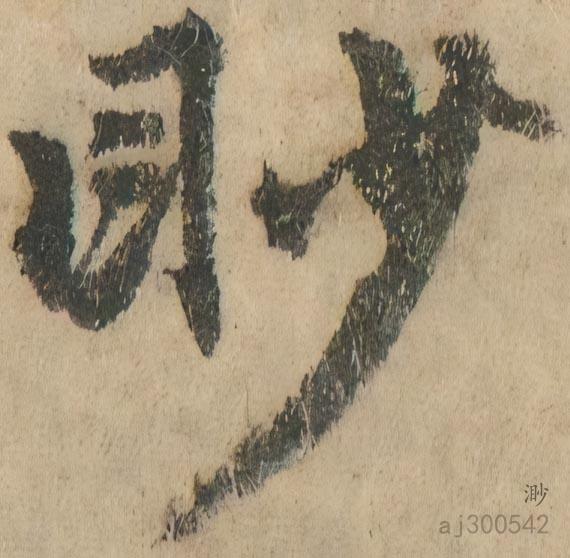 渺
渺
aj300542